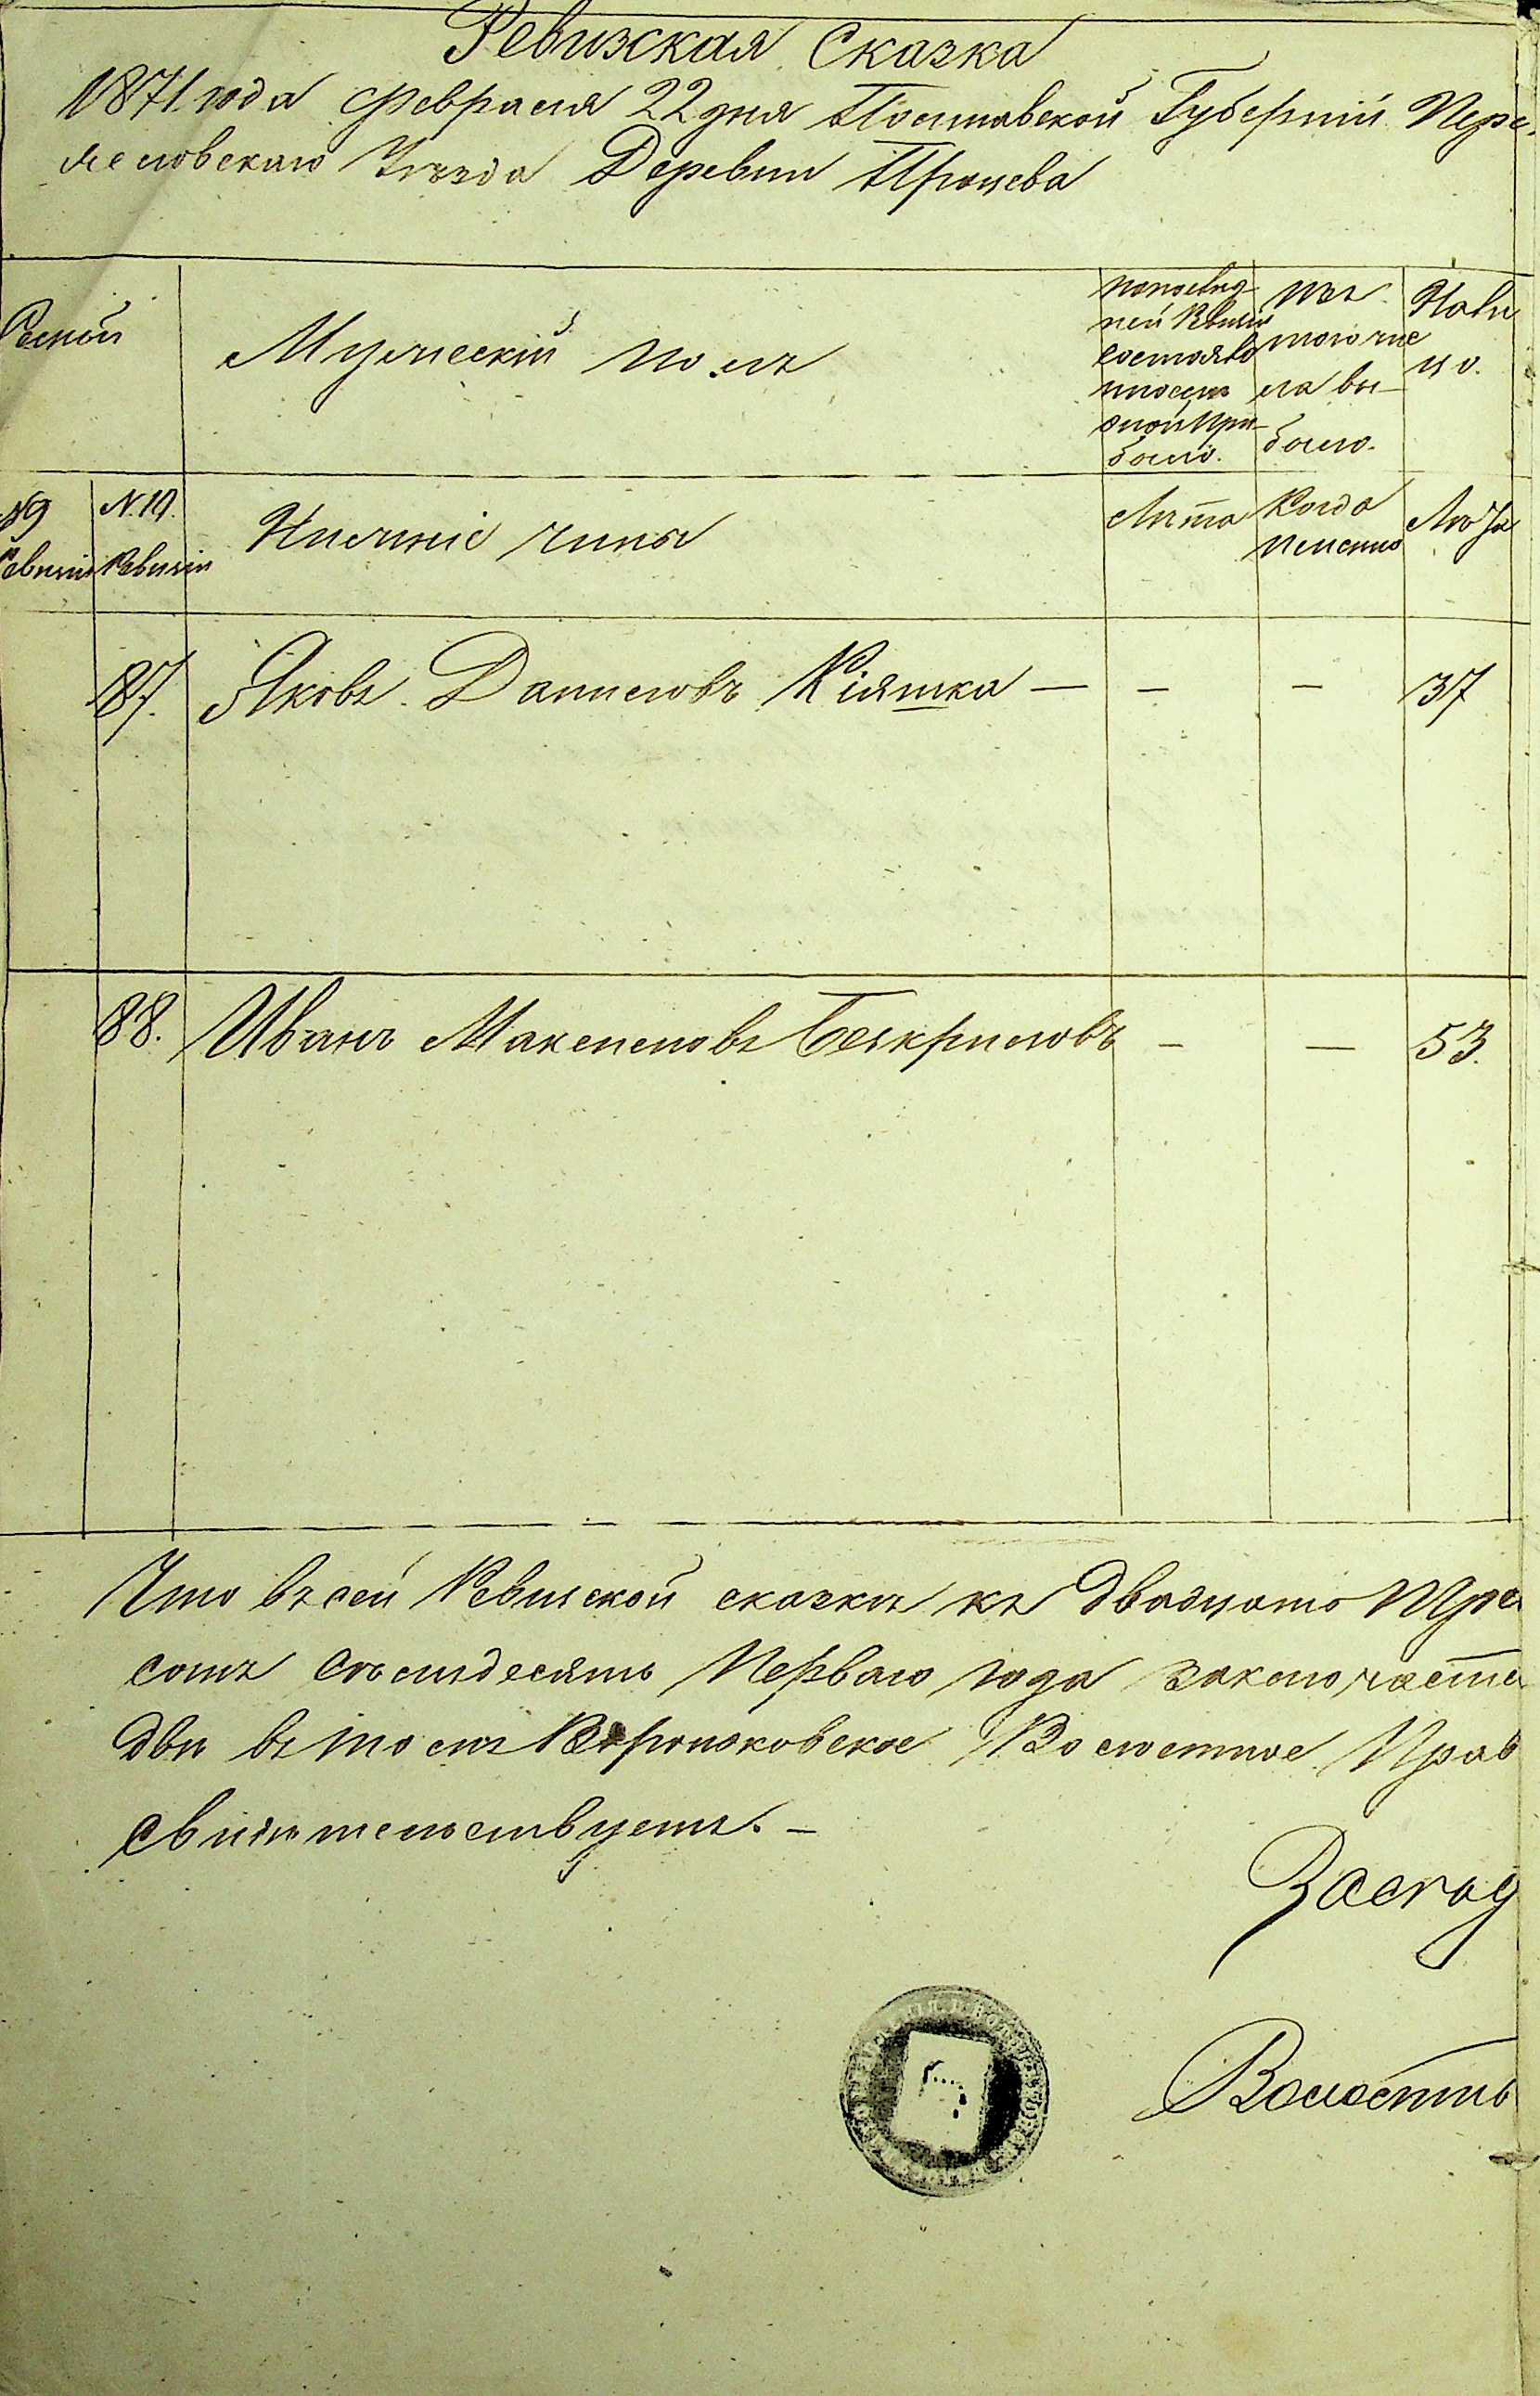 Ревизская Сказка
1871 года Февраля 22 дня Полтавской Губерніи Пере-
яславскаго Уѣзда Деревни Процева
Мужескій полъ
попослѣд-
ней Ревизіи
состояло
и послѣ
оной при-
было.
изъ
того чис
ла вы-
было.
На ли
цо.
№ 9 Ревизіи
№ 10. Ревизіи
Нижніе чины
Лѣта
Когда именно
Лѣта
87. Яковъ Даниловъ Кіяшка — — — 37
88. Иванъ Максимовъ Бескриловъ — — 53.
Что въ сей Ревизской сказкѣ къ двадцать Тре
сотъ семьдесять Перваго года заключаетс
двѣ въ томъ Воронковское Волостное Прав
свидѣтельствуетъ. —
Волостнь